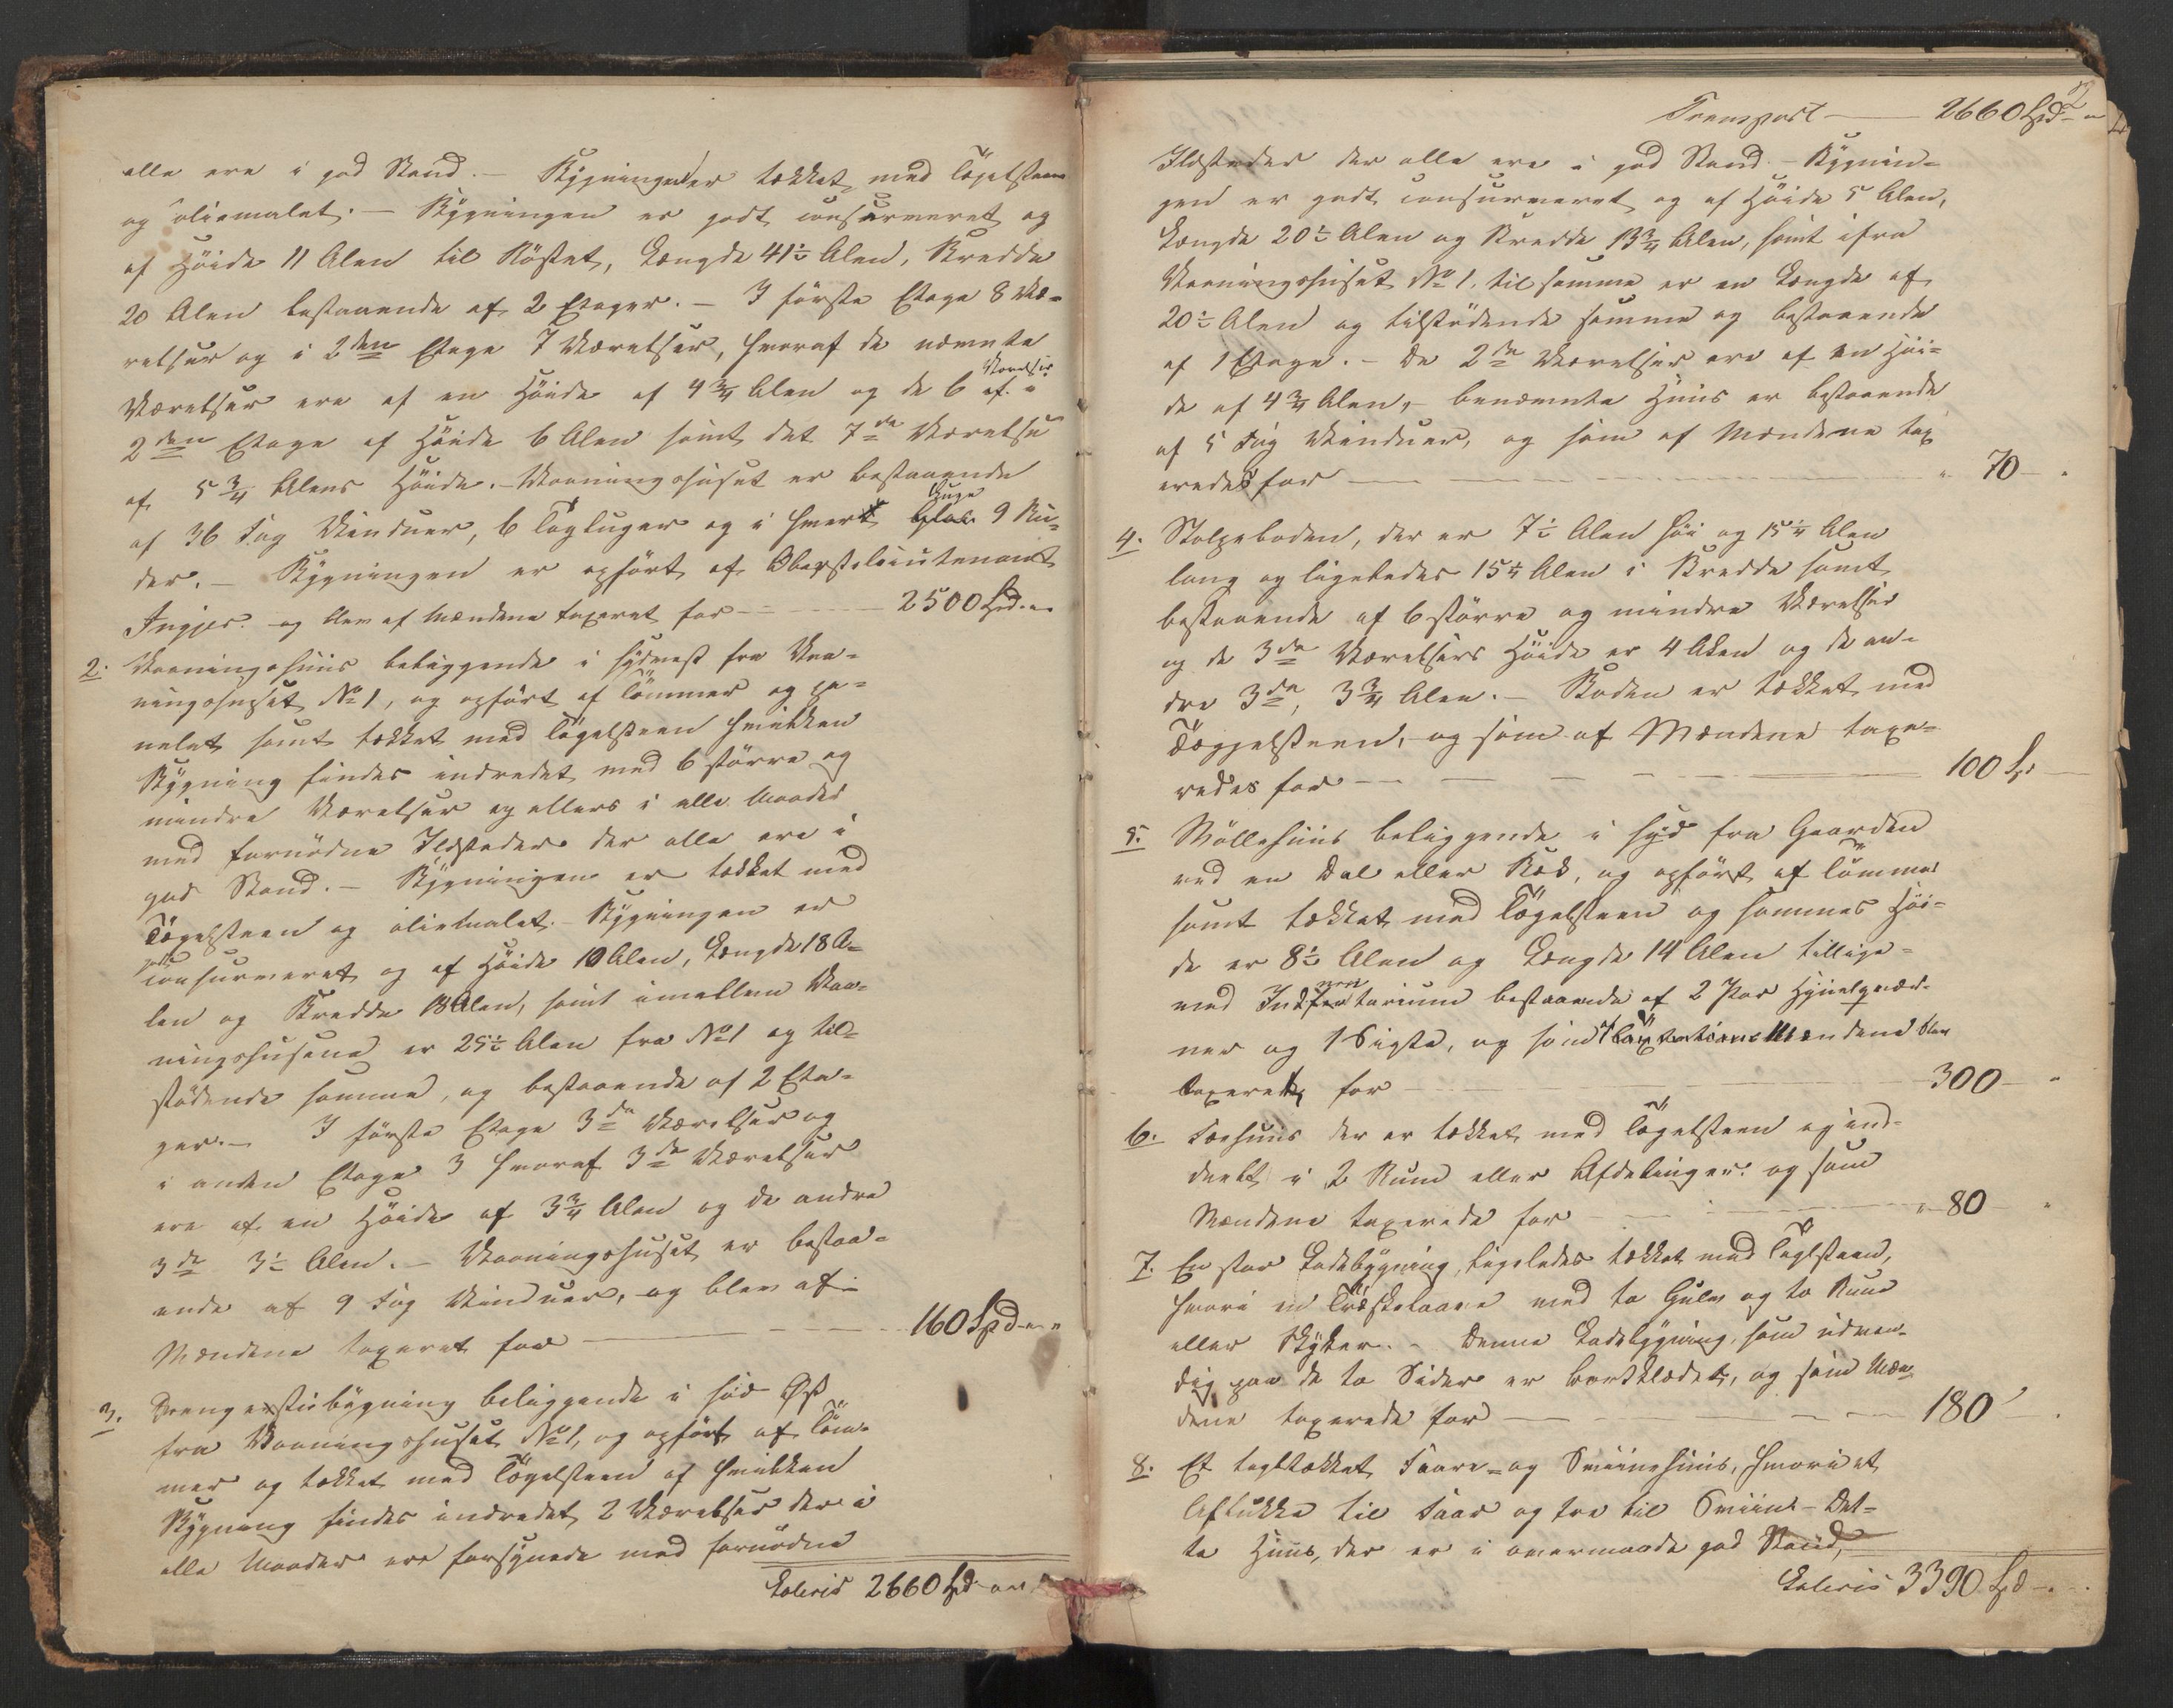 alle ere i god Stand. — Bygningen er tækket med Tögelsteen
og oliemalet. — Bygningen er godt conserveret og
af Höide 11 Alen til Röstet, Længde 41½ Alen, Bredde
20 Alen bestaaende af 2 Etager. — I förste Etage 8 Væ-
relser og i 2den Etage 7 Værelser, hvoraf de nævnte
Værelser ere af en Höide af 4¾ Alen og de 6 Værelser af i
2den Etage af Höide 6 Alen samt det 7de Værelse
af 5¾ Alens Höide. — Vaaningshuset er bestaaende
af 36 Fag Vinduer, 6 Tagluger og i hvert Luge 9 Ru-
der. — Bygningen er opfört af Oberstlieutenant
Ingjer. og blev af Mændene taxeret for — 2500 Spd. " "
2. Vaaningshuus beliggende i sydvest fra Vaa-
ningshuset No 1, og opfört af Tömmer og pa-
nelet samt tækket med Tögelsteen hvilken
Bygning findes indredet med 6 större og
mindre Værelser og ellers i alle Maader
med fornödne Ildsteder der alle ere i
god Stand. — Bygningen er tækket med
Tögelsteen og oliemalet. — Bygningen er
godt conserveret og af Höide 10 Alen, Længde 18 A-
len og Bredde 13 Alen, samt imellem Vaa-
ningshusene er 25½ Alen fra No 1 og til-
stödende samme, og bestaaende af 2 Eta-
ger. — I förste Etage 3de Værelser og
i anden Etage 3 hvoraf 3de Værelser
ere af en Höide af 3¾ Alen og de andre
3de 3½ Alen. — Vaaningshuset er bestaa-
ende af 9 Fag Vinduer, og blev af
Mændene taxeret for — 160 Spd " "
3. Drengestuebygning beliggende i syd Öst
fra Vaaningshuset No 1, og opfört af Töm-
mer og tækket med Tögelsteen af hvilken
Bygning findes indredet 2 Værelser der i
alle Maader ere forsynede med fornödne
Lateris 2660 Spd " "
2
Transport — 2660 Spd "
Ildsteder der alle ere i god Stand. — Bygnin-
gen er godt conserveret og af Höide 5 Alen,
Længde 20½ Alen og Bredde 13¾ Alen, samt ifra
Vaaningshuset No 1, til samme er en Længde af
20½ Alen og tilstödende samme og bestaaende
af 1 Etage. — De 2de Værelser ere af en Höi-
de af 4¾ Alen, — benævnte Huus er bestaaende
af 5 Fag Vinduer, og som af Mændene tax
eredes for — " 70 — "
4. Stolpeboden, der er 7½ Alen höi og 15¼ Alen
lang og ligeledes 15¼ Alen i Bredde samt
bestaaende af 6 större og mindre Værelser
og de 3de Værelsers Höide er 4 Alen og de an-
dre 3de, 3¾ Alen. — Boden er tækket med
Töggelsteen, og som af Mændene taxe-
redes for — 100 Sp —
5. Möllehuus beliggende i syd fra Gaarden
ved en Dal eller Bæk, og opfört af Tömmer
samt tækket med Tögelsteen og sammes Höi-
de er 8½ Alen og Længde 14 Alen tillige-
med Inventarium bestaaende af 2 Par Hjuulqvær-
ner og 1 Sigte, og som Taxtations Mændene blev
taxeret for — 300 — "
6. Foehuus der er tækket med Tögelsteen og ind-
deelt i 2 Rum eller Afdelinger og som
Mændene taxerede for — " 80 — "
7. En stor Ladebygning, ligeledes tækket med Teglsteen,
hvori en Træskelaave med to Gulve og to Rum
eller Stykker. — Denne Ladebygning, som udven-
dig paa de to Sider er bordklædet, og som Mæn
dene taxerede for — 180
8. Et tegltækket Faare- og Sviinehuus, hvori et
Aflukke til Faar og tre til Sviin — Det-
te Huus, der er i overmaade god Stand,
Lateris 3390 Spd — "